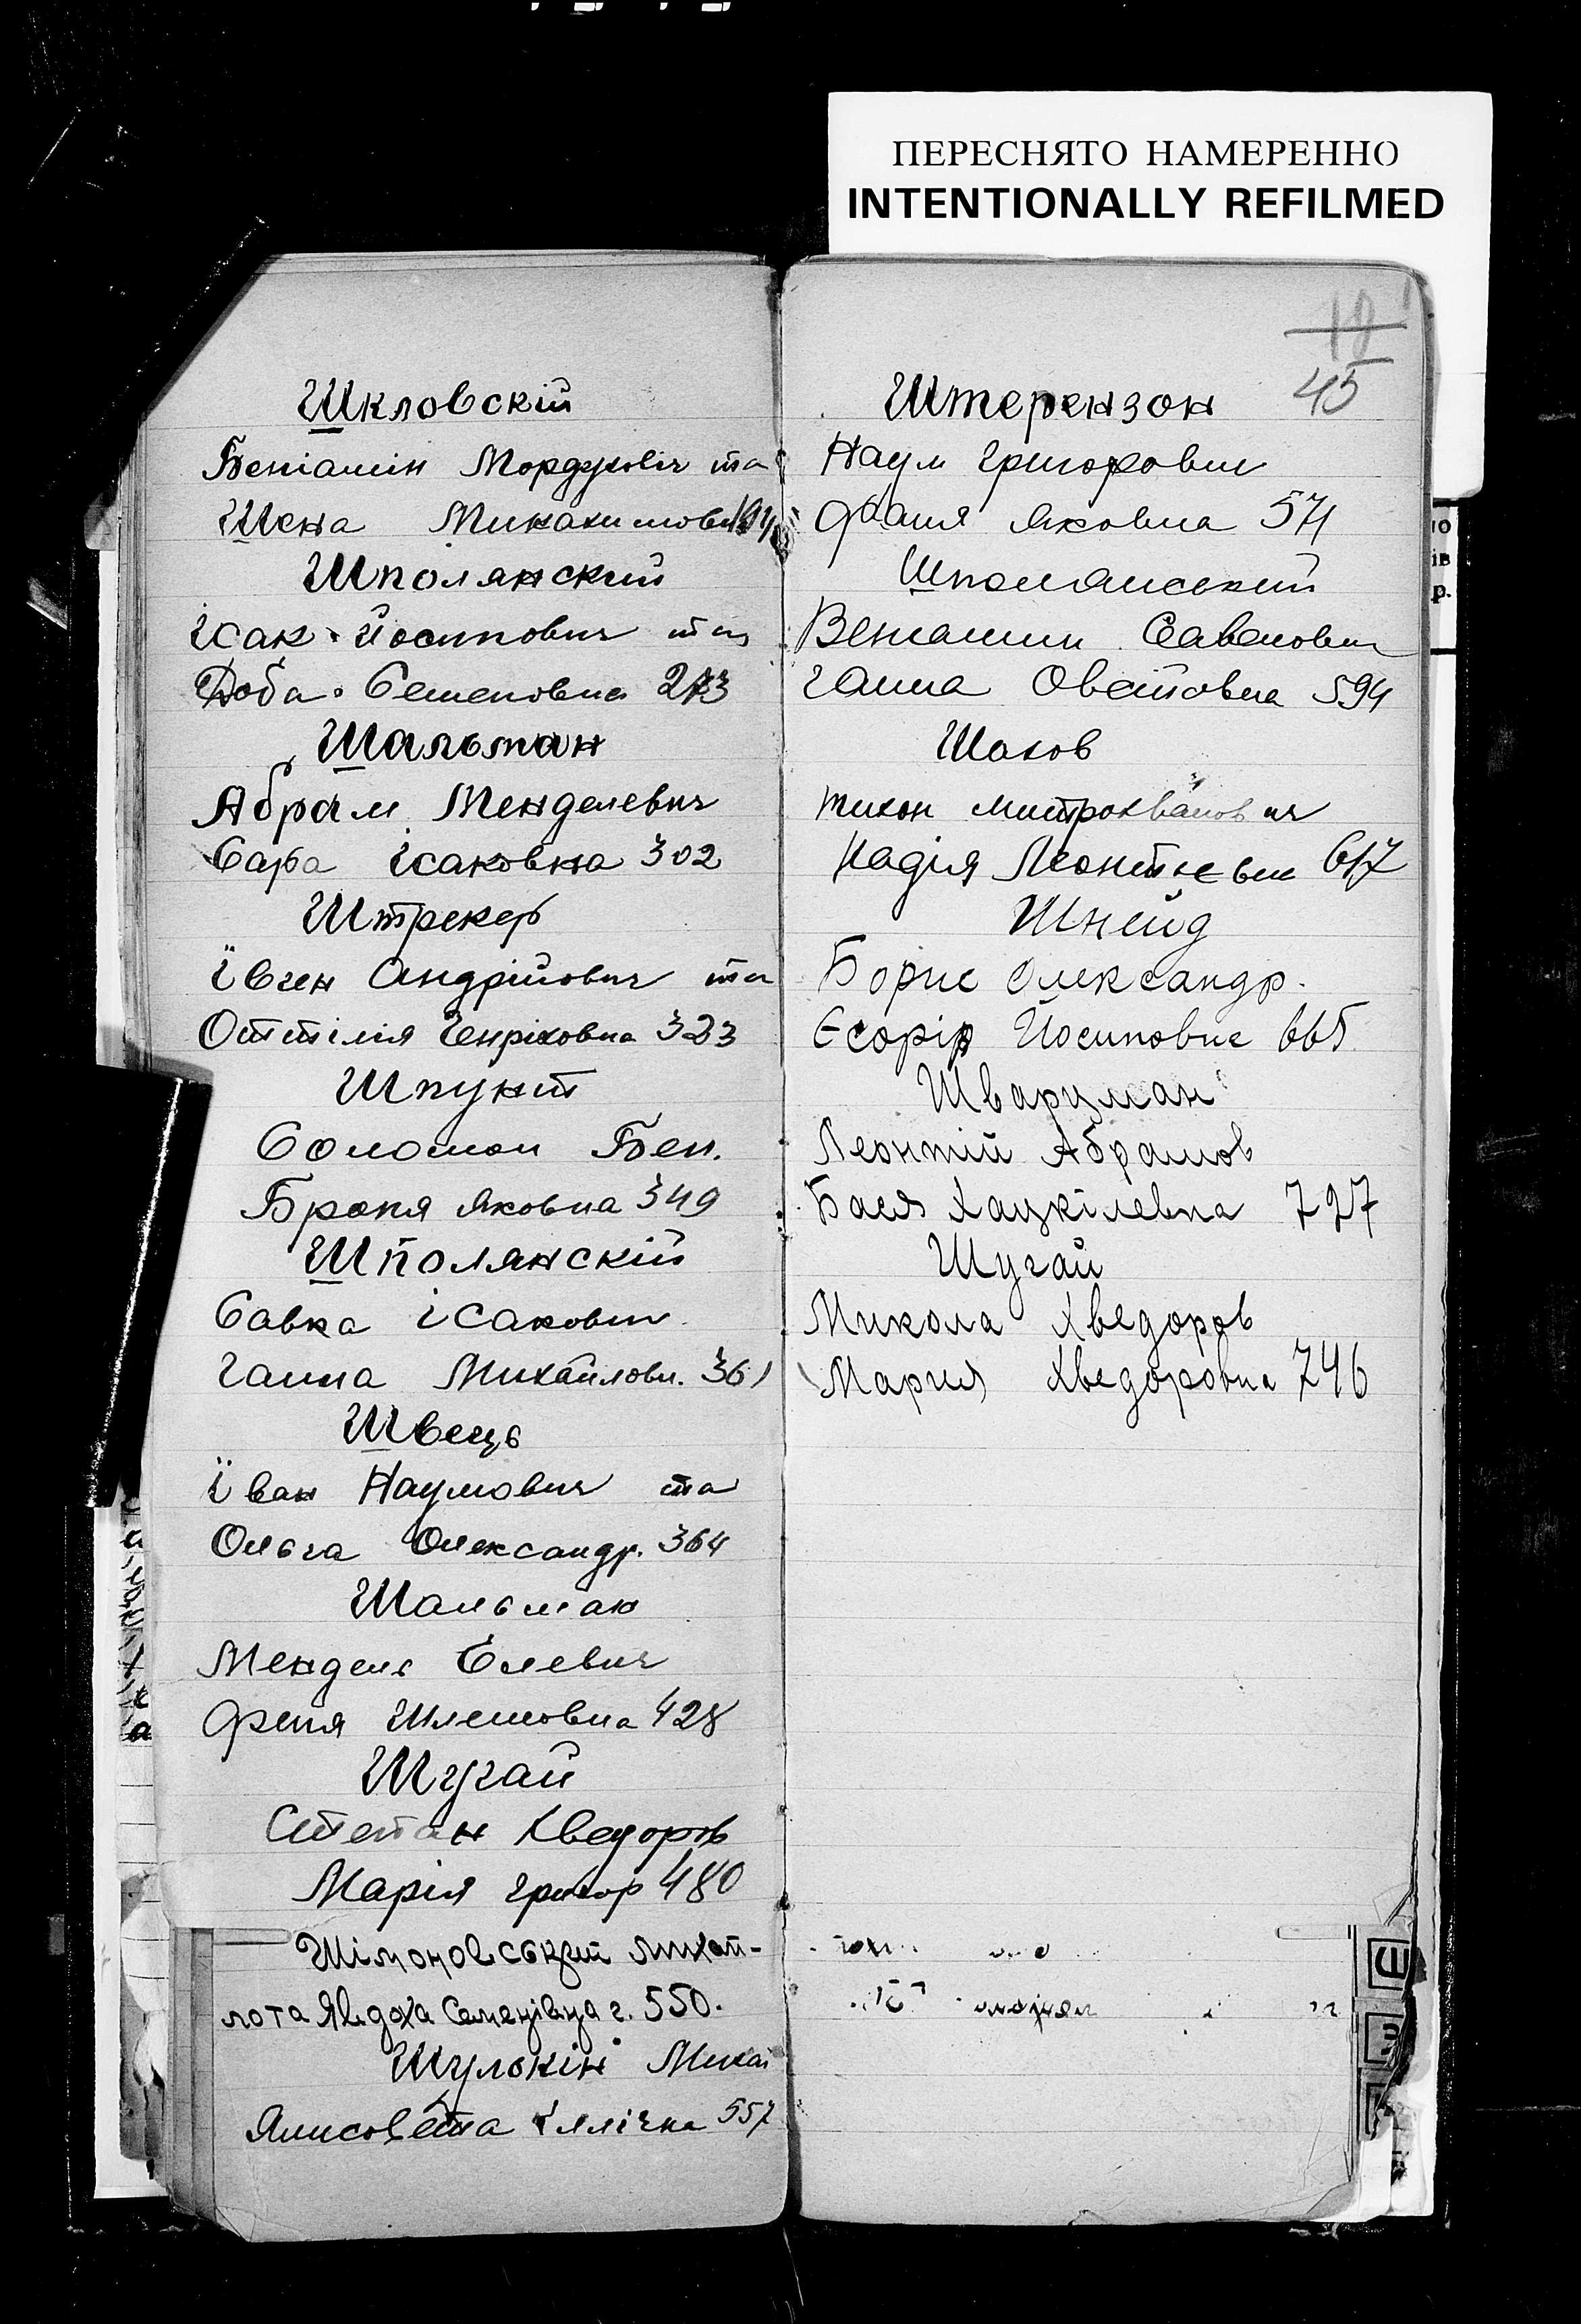 ПЕРЕСНЯТО НАМЕРЕННО
INTENTIONALLY REFILMED
Шкловскій
Беніамін Мордухович та
Шена
Шполянский
Ісак Йосипович та
Доба Семеновна 273
Шальман
Абрам Менделевич
Сара Ісаковна 302
Штрекер
Івген Андрійович та
Оттілія Генріховна 323
Шпунт
Соломон Бен.
Броня Яковна 349
Шполянскій
Савка Ісакович
Ганна Михайловн. 361
Швець
Іван Наумович та
Ольга Олександр. 364
Шальман
Мендель Елевич
Феня Шлемовна 428
Шугай
Степан Хведоров
Марія Григор 480
Шімоновський Михай-
лота Явдоха Семенівна г. 550.
Шулькін Михай
Ялисовета 557
45
Штерензон
Наум Григорович
Фаня Яковна 571
Шполянський
Веніамин Савелович
Ганна 594
Шахов
Тихон Митрохванович
Надія Леонтієвн 617
Шнейд
Борис Олександр.
Йосиповна 665
Шварцман
Леонтій Абрамов
Бася Хацкілевна 727
Шугай
Микола Хведоров
Мария Хведоровна 746